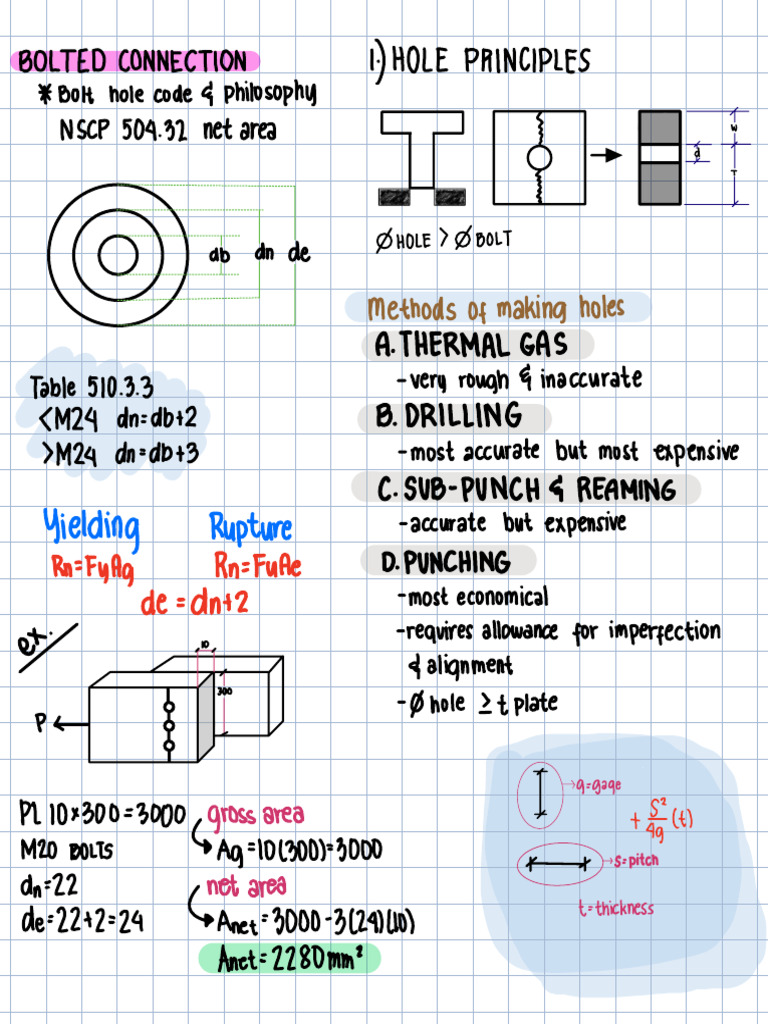 BOLTED CONNECTION
* Bolt hole code & philosophy
NSCP 504.32 net area
db dn de
Table 510.3.3
<M24 dn=db+2
>M24 dn=db+3
Yielding Rupture
Rn=FyAg Rn=FuAe
de = dn+2
ex.
10
300
P
PL 10×300=3000
M20 BOLTS
dn=22
de=22+2=24
gross area
Ag=10(300)=3000
net area
Anet=3000-3(24)(10)
Anet=2280mm²
1.) HOLE PRINCIPLES
W
d
T
Ø HOLE > Ø BOLT
Methods of making holes
A. THERMAL GAS
-very rough & inaccurate
B. DRILLING
-most accurate but most expensive
C. SUB-PUNCH & REAMING
-accurate but expensive
D. PUNCHING
-most economical
-requires allowance for imperfection
& alignment
-Ø hole ≥ t plate
g=gage
+ S²/4g (t)
s=pitch
t=thickness